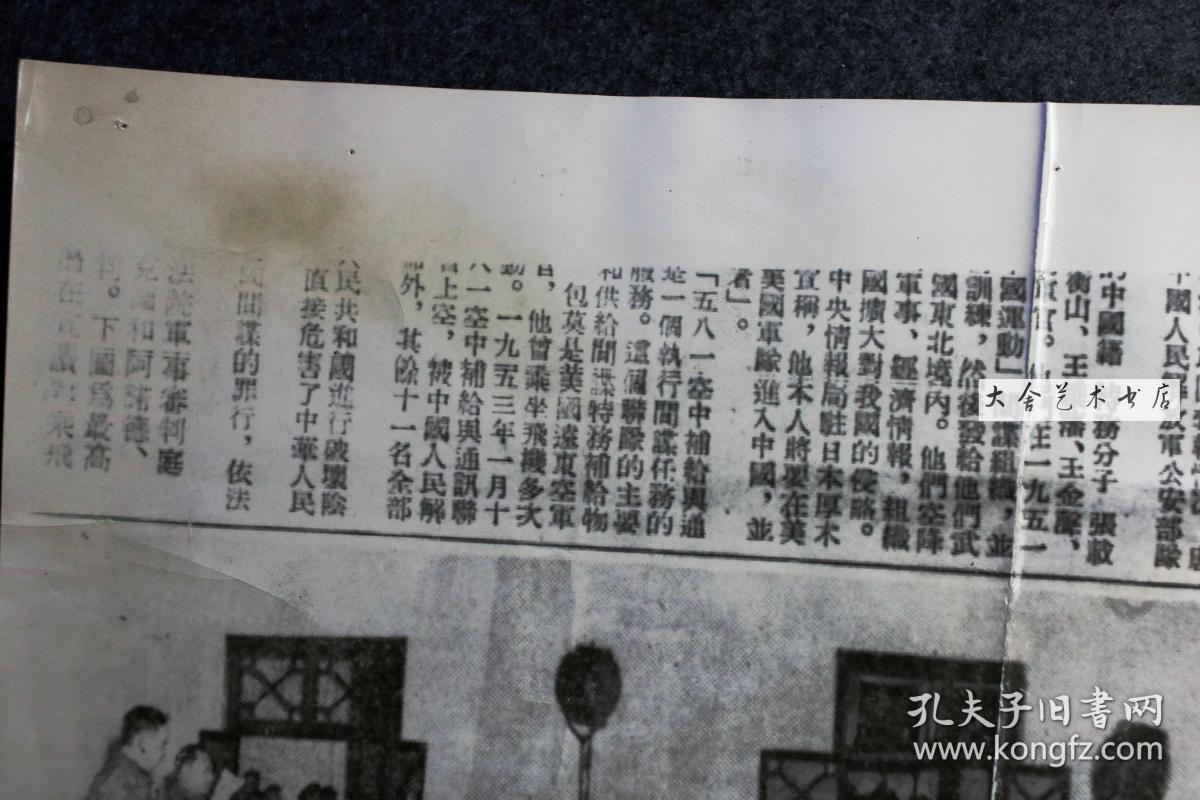 中國人民解放軍公安部隊
的中國籍
務分子 張載
衡山、王
王金聲、
在一九五一
國運動」
諜組織，並
訓練，然後發給他們武
國東北境內。他們空降
軍事、經濟情報，組織
國擴大對我國的侵略。
中央情報局駐日本厚木
宣稱，他本人將要在美
美國軍隊進入中國，並
者」。
「五八一空中補給與通
是一個執行間諜任務的
服務。這個聯隊的主要
和供給間諜特務補給物
包莫是美國遠東空軍
官，他曾乘坐飛機多次
動。一九五三年一月十
八一空中補給與通訊聯
省上空，被中國人民解
部外，其餘十一名全部
人民共和國進行破壞陰
直接危害了中華人民
間諜的罪行，依法
法院軍事審判庭
克國和阿諾德、
判。下圖爲最高
大舍艺术书店
孔夫子旧書网
www.kongfz.com